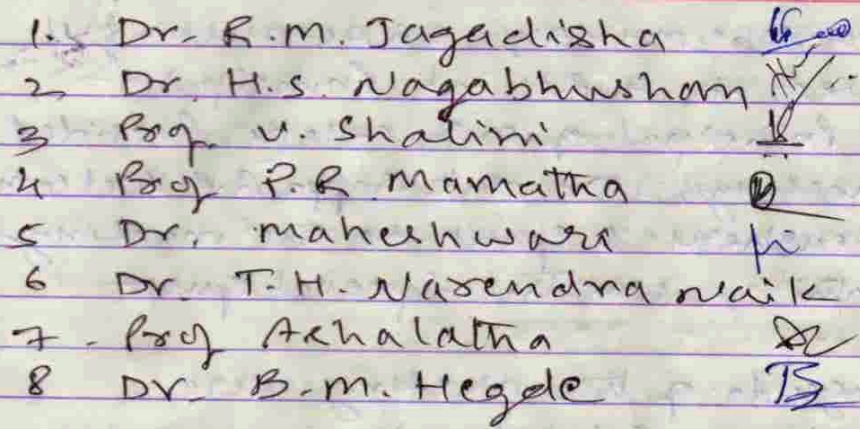 1. Dr. R.M. Jagadisha
2 Dr. H.S. Nagabhushan
3 Prof. V. Shalini
4 Prof P.R. Mamatha
5 Dr. Maheshwari
6 Dr. T.H. Narendra Naik
7. Prof Ashalatha
8 Dr. B.M. Hegde